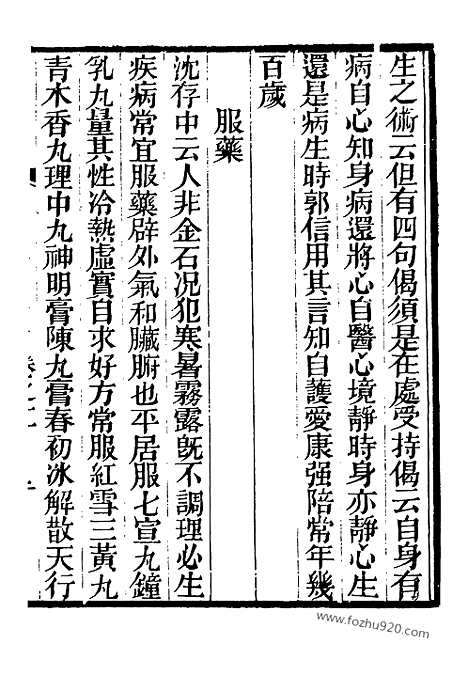 生之術云但有四句偈須是在處受持偈云自身有
病自心知身病還將心自醫心境靜時身亦靜心生
還是病生時郭信用其言知自護愛康强陪常年幾
百歲
服藥
沈存中云人非金石况犯寒暑霧露旣不調理必生
疾病常宜服藥辟外氣和臟腑也平居服七宣丸鐘
乳丸量其性冷熱虛實自求好方常服紅雪三黃丸
青木香丸理中丸神明膏陳丸膏春初氷解散天行
www.fozhu920.com